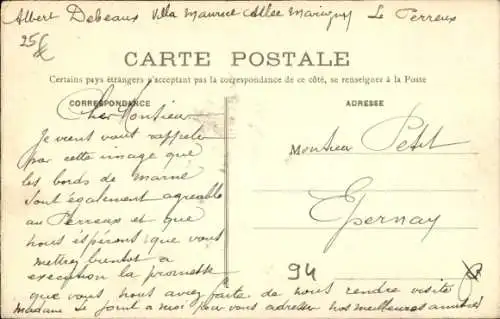 Albert Debeaux Villa Maurice Allee Marigny Le Perreux
25c
CARTE POSTALE
Certains pays étrangers n'acceptant pas la correspondance de ce côté, se renseigner à la Poste
CORRESPONDANCE
ADRESSE
Cher Monsieur
Je viens vous rappeler
par cette image que
les bords de marne
sont également agreable
au Perreux et que
nous éspérons que vous
mettrez bientot a
execution la promesse
que vous nous aviez faite de nous rendre visite
Madame se joint a moi pour vous adresser nos meilleures amitiés
Monsieur Petit
Epernay
94